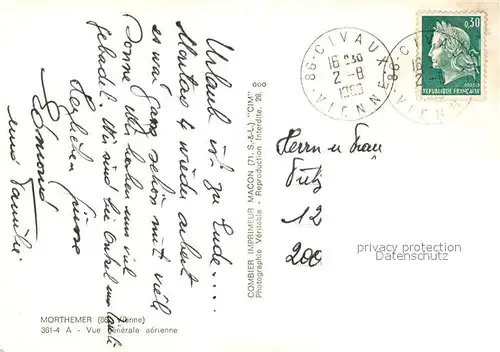 Urlaub ist zu Ende....
Montag wieder Arbeit
es war ganz schön mit viel
Sonne. Wir haben uns viel
gebadet. Wir sind bei Onkel und Tante
Herzliche Grüsse
Edmond
und Familie
MORTHEMER (86 Vienne)
361-4 A - Vue générale aérienne
COMBIER IMPRIMEUR MACON (71, S.-&-L.) "CIM"
Photographie Véritable - Reproduction Interdite.
86 - CIVAUX
16 H 30
2-8
VIENNE
0,30
REPUBLIQUE FRANÇAISE
Herrn u Frau
12
200
privacy protection
samplewatermark